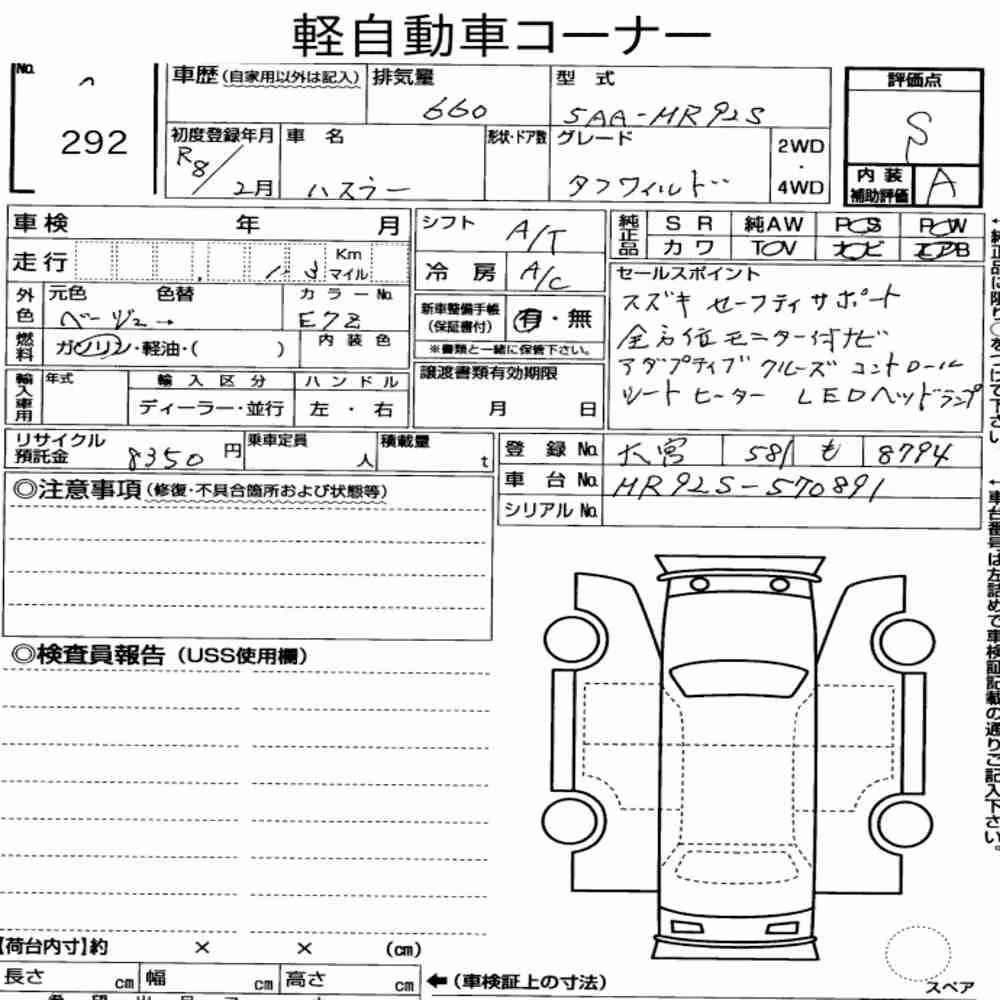 軽自動車コーナー
No.
292
車歴 (自家用以外は記入)
排気量
660
型式
5AA-MR92S
評価点
S
初度登録年月
R8/2月
車名
ハスラー
形状・ドア数
グレード
タフワイルド
2WD
・
4WD
内装
補助評価
A
車検 年 月
走行 1.3 Km マイル
シフト A/T
冷房 A/C
純正品
SR 純AW PS PW
カワ TV ナビ エアB
外色
元色 色替
ベージュ→
カラーNo.
E7Z
燃料
ガソリン・軽油・( )
内装色
新車整備手帳
(保証書付)
有・無
※書類と一緒に保管下さい。
セールスポイント
スズキ セーフティサポート
全方位モニター付ナビ
アダプティブ クルーズ コントロール
シートヒーター LEDヘッドランプ
輸入車用
年式
輸入区分
ディーラー・並行
ハンドル
左・右
譲渡書類有効期限
月 日
リサイクル
預託金
8350円
乗車定員
人
積載量
t
登録No. 大宮 581 も 8794
車台No. MR92S-570891
シリアルNo.
◎注意事項(修復・不具合箇所および状態等)
◎検査員報告(USS使用欄)
【荷台内寸】約 × × (cm)
長さ cm 幅 cm 高さ cm
←(車検証上の寸法)
スペア
←純正品に限り○をつけて下さい。
←車台番号は左詰めで車検証記載の通りご記入下さい。